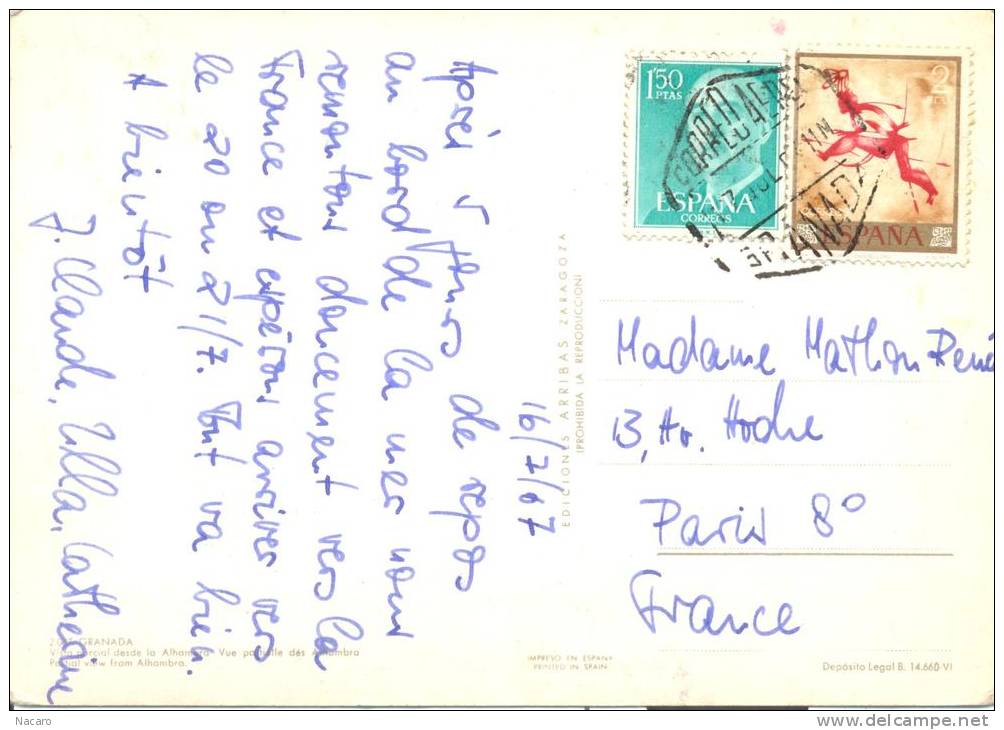 16/7/67
Après 5 jours de repos
au bord de la mer nous
remontons doucement vers la
France et espérons arriver vers
le 20 ou 21/7. Tout va bien.
A bientôt
J. Claude, Ulla, Catherine
1'50
PTAS
ESPAÑA
CORREOS
2
PTAS
ESPAÑA
CORREO AEREO
GRANADA
Madame Mathon René
13, Av. Hoche
Paris 8°
France
EDICIONES ARRIBAS ZARAGOZA
(PROHIBIDA LA REPRODUCCION)
GRANADA
Vista parcial desde la Alhambra. Vue partielle dés Alhambra
Partial view from Alhambra.
IMPRESO EN ESPAÑA
PRINTED IN SPAIN
Depósito Legal B. 14.660-VI
Nacaro
www.delcampe.net